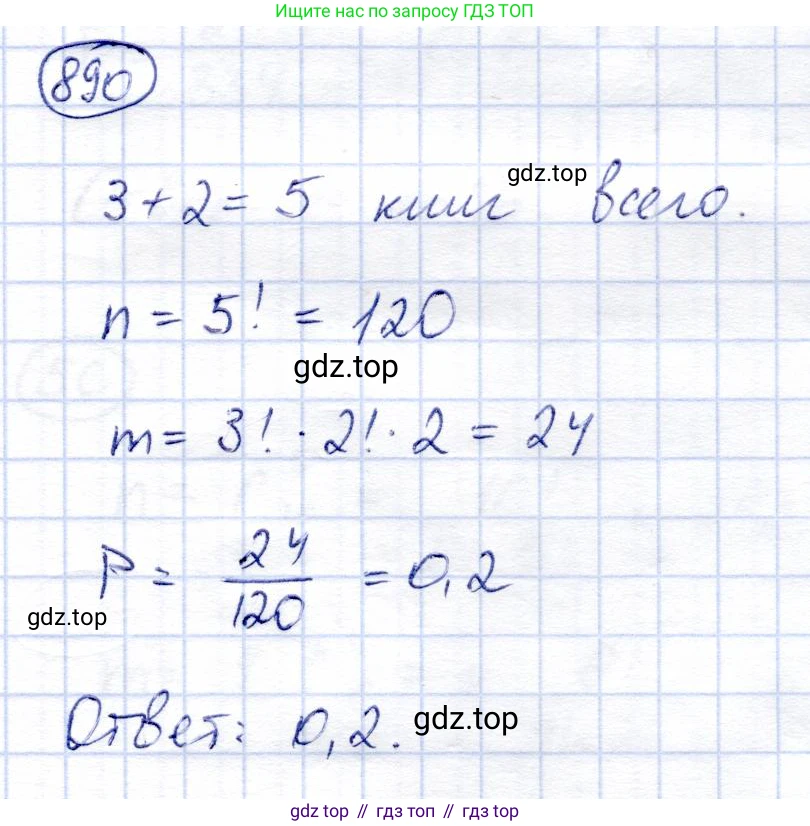 Ищите нас по запросу ГДЗ ТОП
890
3 + 2 = 5 книг всего.
gdz.top
n = 5! = 120
gdz.top
m = 3! · 2! · 2 = 24
P = 24/120 = 0,2
gdz.top
Ответ: 0,2.
gdz.top
gdz top // гдз топ // gdz.top